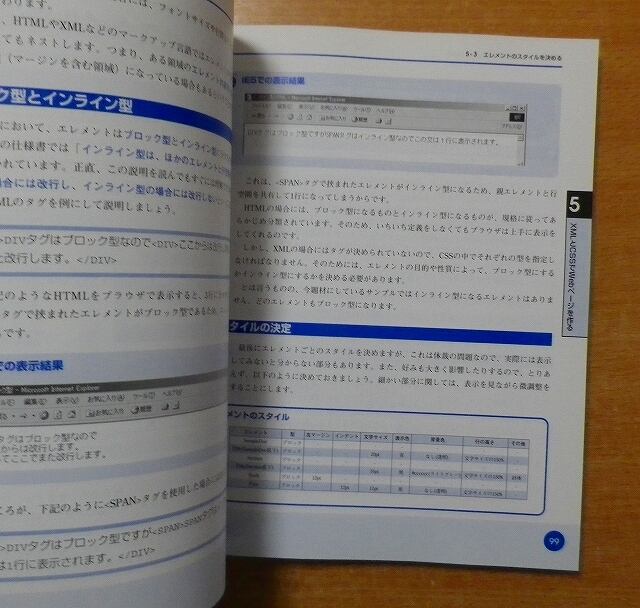 には、フォントサイズや
、HTMLやXMLなどのマークアップ言語では
てもネストします。つまり、ある領域のエレメント
（マージンを含む領域）になっている場合も
ク型とインライン型
において、エレメントはブロック型とインライン型
の仕様書では「インライン型は、ほかのエレメント
かれています。正直、この説明を読んでもすぐには
場合には改行し、インライン型の場合には改行しない
MLのタグを例にして説明しましょう。
>DIVタグはブロック型なので<DIV>ここからは改行
と改行します。</DIV>
記のようなHTMLをブラウザで表示すると、
タグで挟まれたエレメントがブロック型である
です。
での表示結果
Microsoft Internet Explorer
編集(E) 表示(V) お気に入り(A) ツール(T) ヘルプ(H)
お気に入り 履歴
タグはブロック型なので
からは改行します
ってここでまた改行します。
ころが、下記のように<SPAN>タグを使用した場合に
>DIVタグはブロック型ですが<SPAN>SPANタグ
は1行に表示されます。</DIV>
5-3 エレメントのスタイルを決める
IE5での表示結果
Microsoft Internet Explorer
編集(E) 表示(V) お気に入り(A) ツール(T) ヘルプ(H)
お気に入り 履歴
DIVタグはブロック型ですがSPANタグはインライン型なのでこの文は1行に表示されます。
これは、<SPAN>タグで挟まれたエレメントがインライン型になるため、親エレメントと行
空間を共有して1行になってしまうからです。
HTMLの場合には、ブロック型になるものとインライン型になるものが、規格に従ってあ
らかじめ分類されています。そのため、いちいち定義をしなくてもブラウザは上手に表示を
してくれるのです。
しかし、XMLの場合にはタグが決められていないので、CSSの中でそれぞれの型を指定し
なければなりません。そのためには、エレメントの目的や性質によって、ブロック型にする
かインライン型にするかを決める必要があります。
とは言うものの、今題材にしているサンプルではインライン型になるエレメントはありま
せん。どのエレメントもブロック型になります。
タイルの決定
最後にエレメントごとのスタイルを決めますが、これは体裁の問題なので、実際には表示
してみないと分からない部分もあります。また、好みも大きく影響したりするので、とりあ
えず、以下のように決めておきましょう。細かい部分に関しては、表示を見ながら微調整を
することにします。
メントのスタイル
エレメント 型 左マージン インデント 文字サイズ 表示色 背景色 行の高さ その他
ブロック
ブロック 20pt 黒 なし(透明) 文字サイズの150%
ブロック
ブロック 12pt
ブロック 12pt 12pt 黒 なし(透明) 文字サイズの150%
5
XMLとCSSでWebページを作る
99